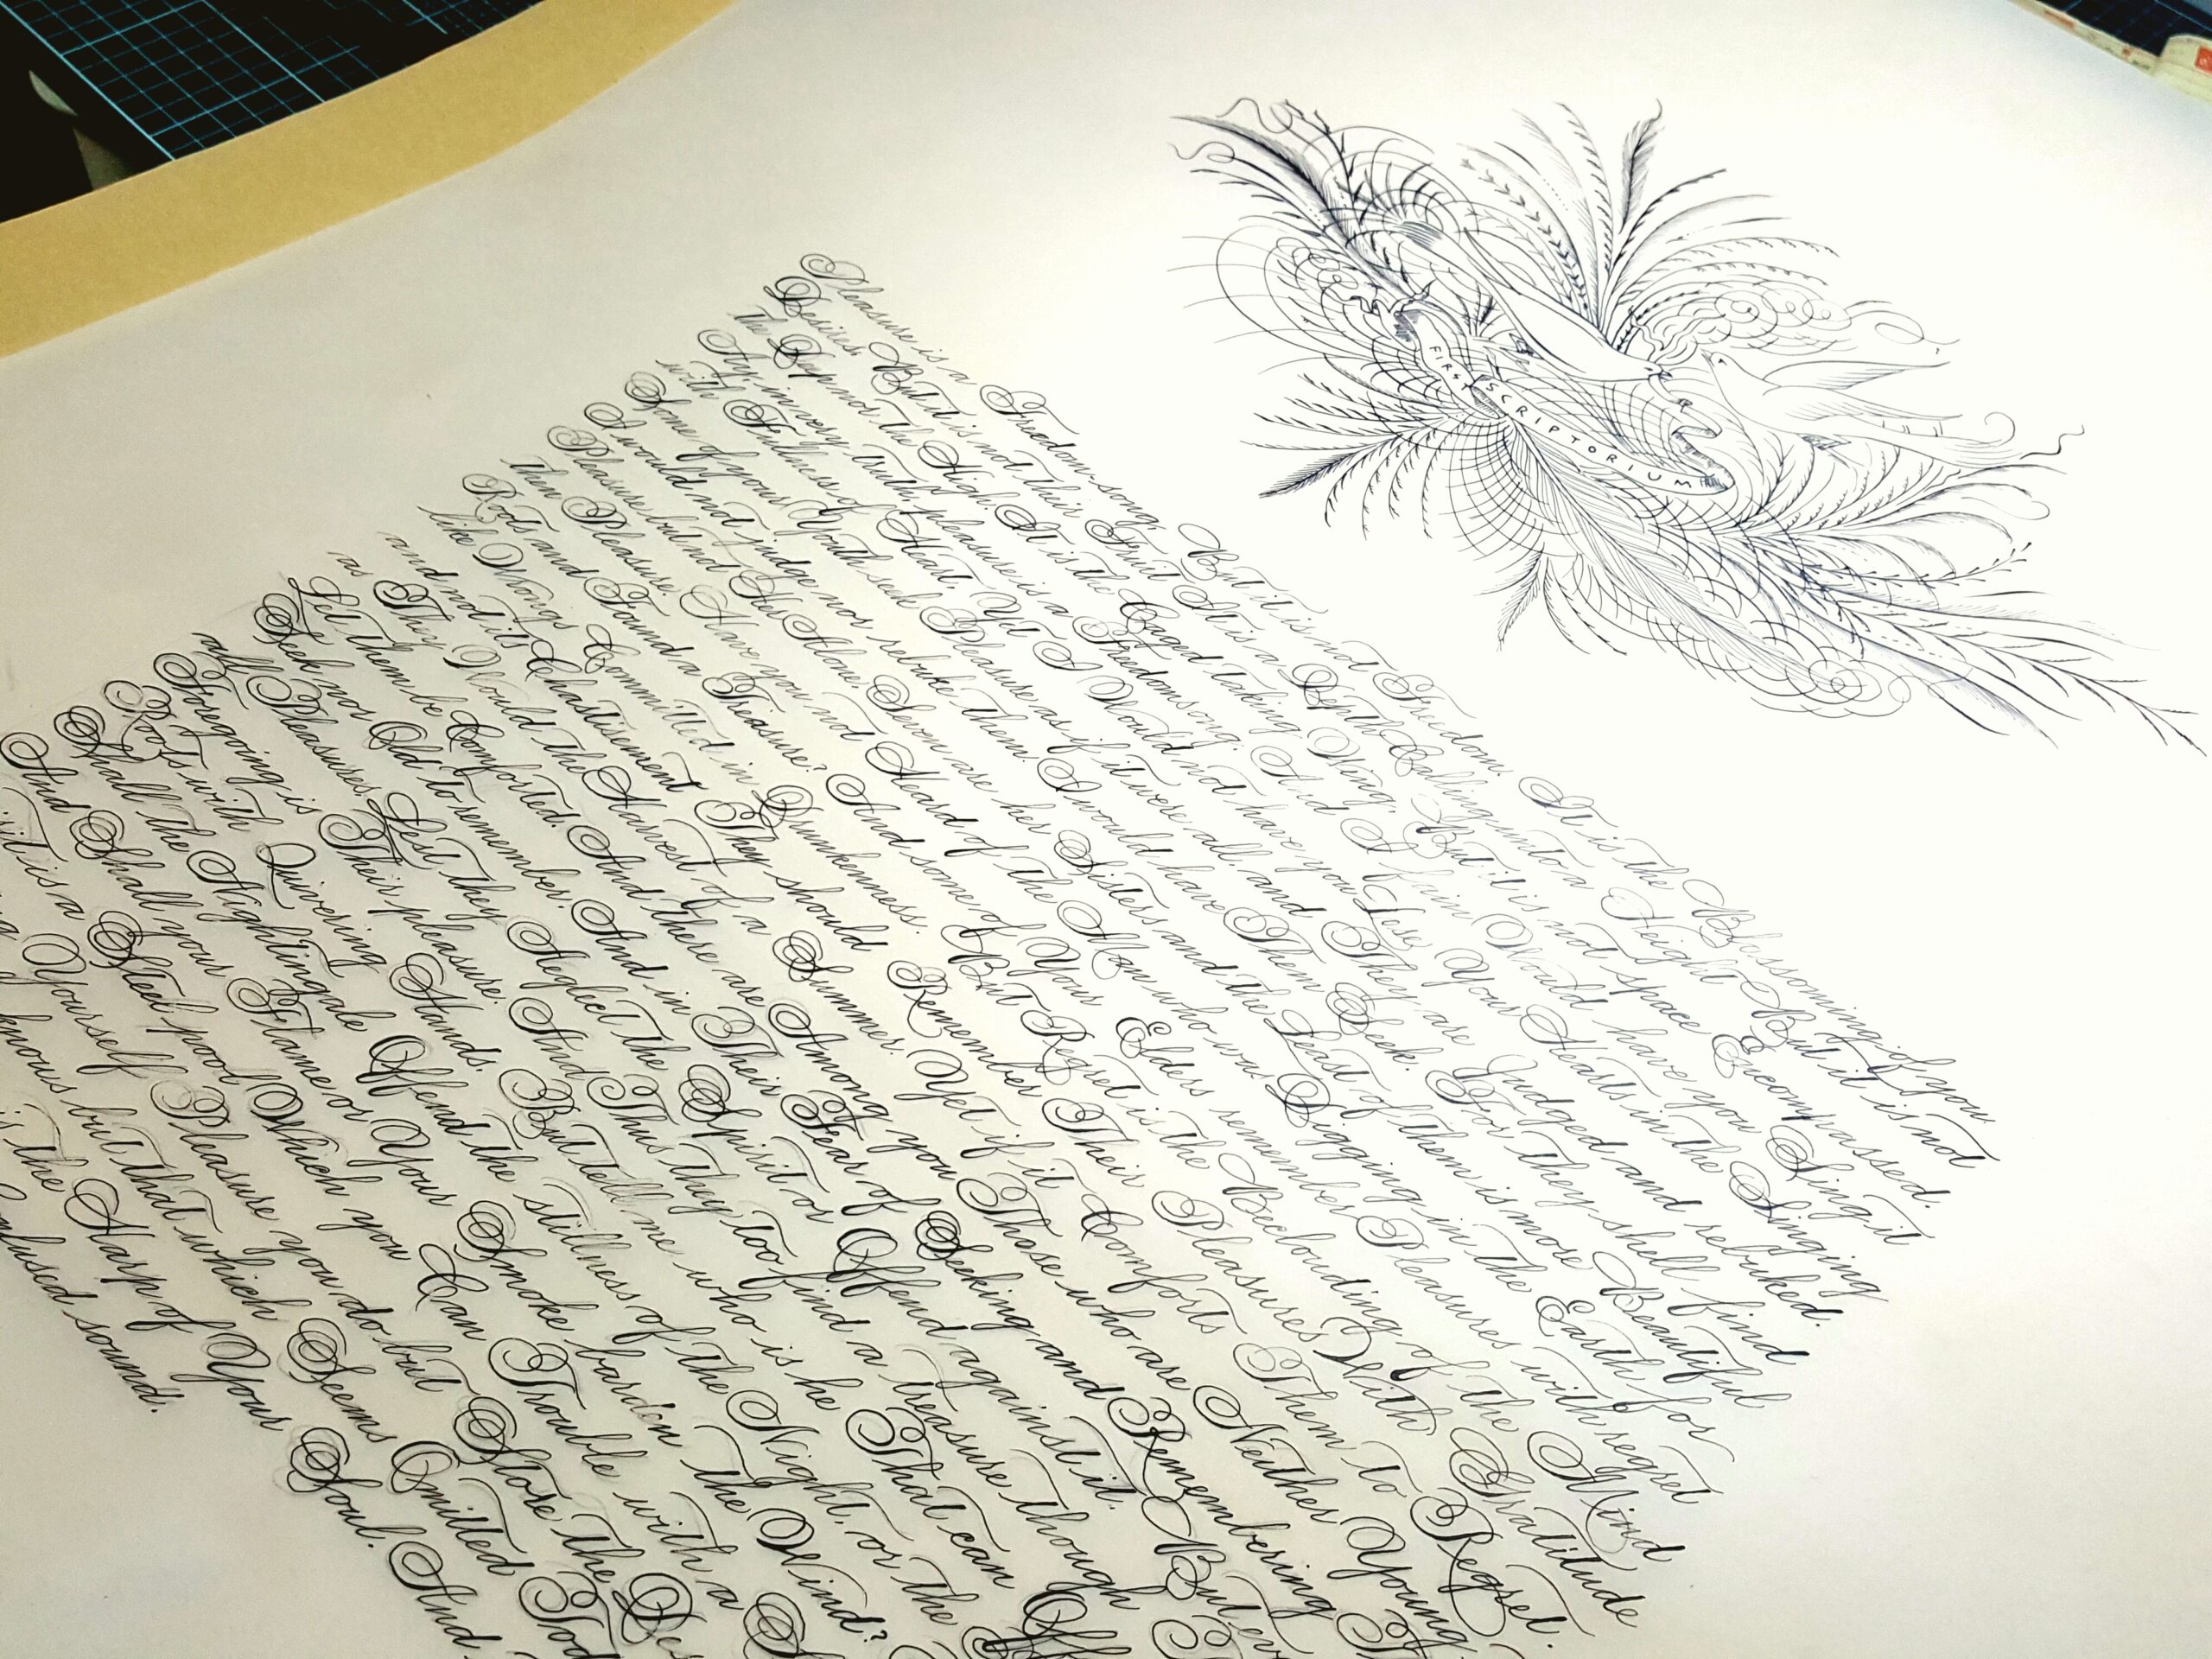 FIRST SCRIPTORIUM
Pleasure is a Freedom-song, But it is not Freedom. It is the Blossoming of you
Desires, But it is not their Fruit It is a Depth Calling unto a Height But it is not
the Deep nor the High, It is the Caged taking Wing, But it is not space Encompassed.
Ay, in very truth, pleasure is a Freedom song. And I Fain Would have you Sing it
with Fullness of Heart Yet I Would not have you Lose Your Hearts in the Singing
Some of your Youth seek Pleasure as if it were all, and They are Judged and rebuked.
I would not judge nor rebuke them. I would have Them Seek. For they shell find
Pleasure, but not Her Alone Seven are her Sisters and the Least of them is more Beautiful
then Pleasure. Have you not Heard of the Man who was Digging in the Earth for
Roots and Found a Treasure? And some of Your Elders remember Pleasures with regret
like Wrongs Committed in Drunkenness. But Regret is the Beclouding of the Mind
and not its Chastisement They should Remember Their Pleasures With Gratitude
as They Would the Harvest of a Summer. Yet if it Comforts Them to Regret.
Let them be Comforted. And there are Among you Those who are Neither Young
Seek nor Old to remember. And in Their Fear of Seeking and Remembering
all Pleasures Lest they Neglect the Spirit or Offend against it. But
Foregoing is Their pleasure. And Thus they too find a treasure though
Roots with Quivering Hands. But tell me who is he That can
Shall the Nightingale Offend the stillness of the Night, or the
And Shall your Flame or Your Smoke burden the Wind?
it is a Still pool Which you Can Trouble with a
Yourself Pleasure you do but Store the
knows but that which Seems Omitted
is the Harp of Your Soul. And
sound.